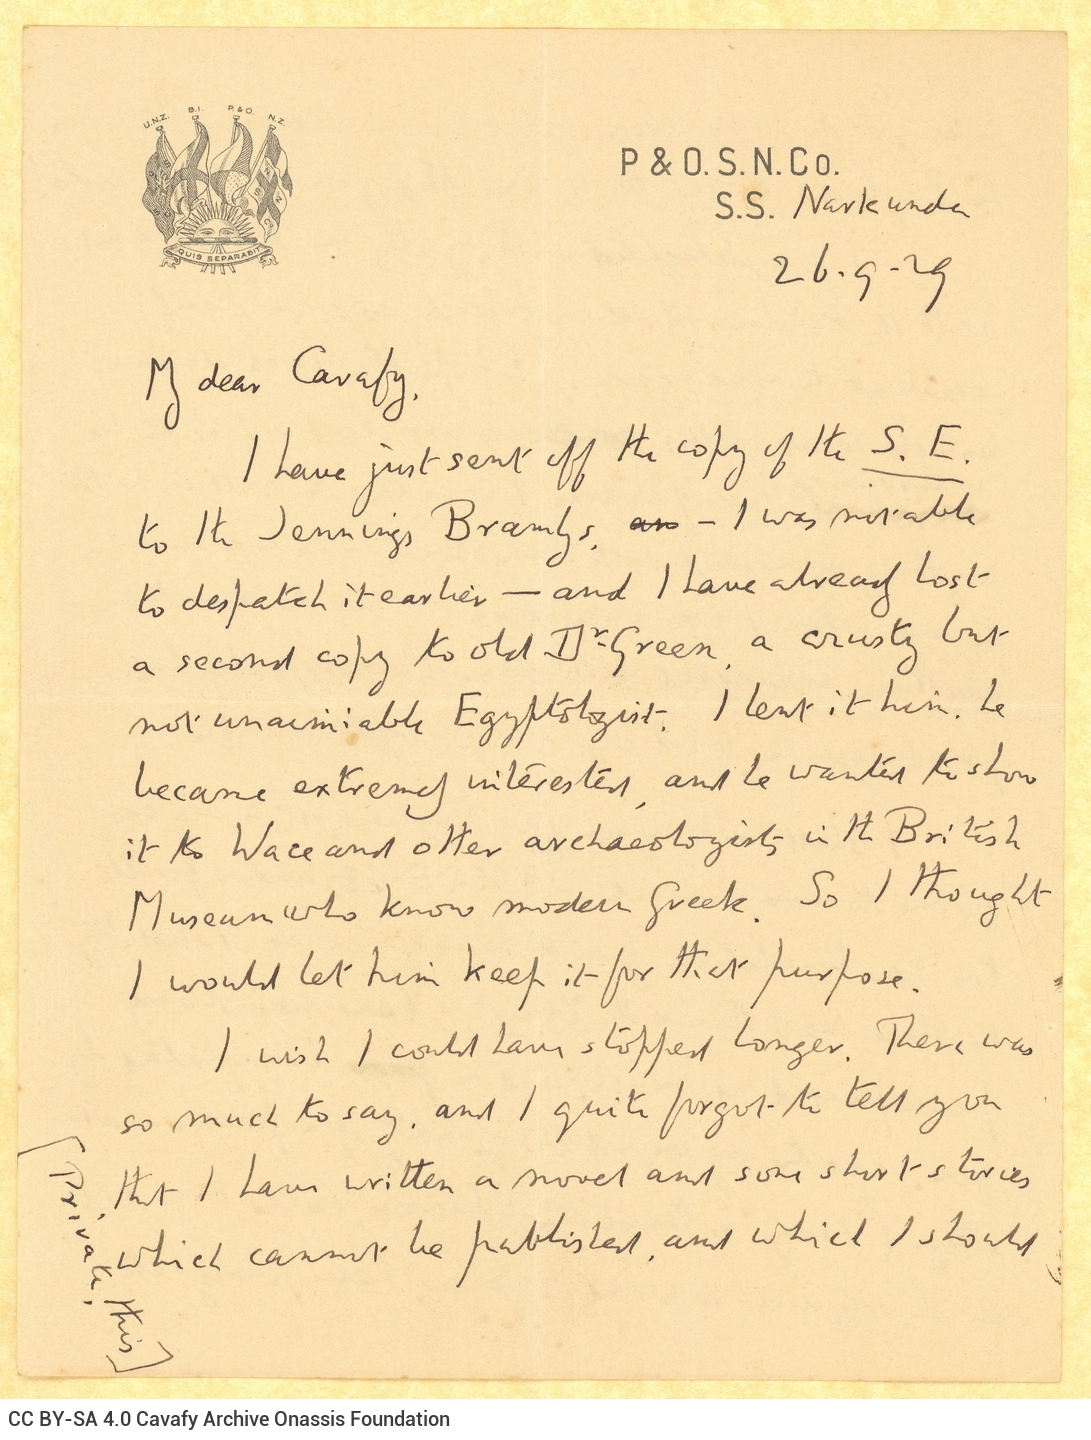 U.N.Z. B.I. P.&O. N.Z.
QUIS SEPARABIT
P & O. S. N. Co.
S.S. Narkunda
26-9-29
My dear Cavafy,
I have just sent off the copy of the S. E.
to the Jennings Bramlys, an – I was not able
to despatch it earlier — and I have already lost
a second copy to old Dr. Green, a crusty but
not unamiable Egyptologist. I lent it him, he
became extremely interested, and he wanted to show
it to Wace and other archaeologists in the British
Museum who know modern Greek. So I thought
I would let him keep it for that purpose.
I wish I could have stopped longer. There was
so much to say, and I quite forgot to tell you
that I have written a novel and some short stories
which cannot be published, and which I should
[Private, this]
CC BY-SA 4.0 Cavafy Archive Onassis Foundation